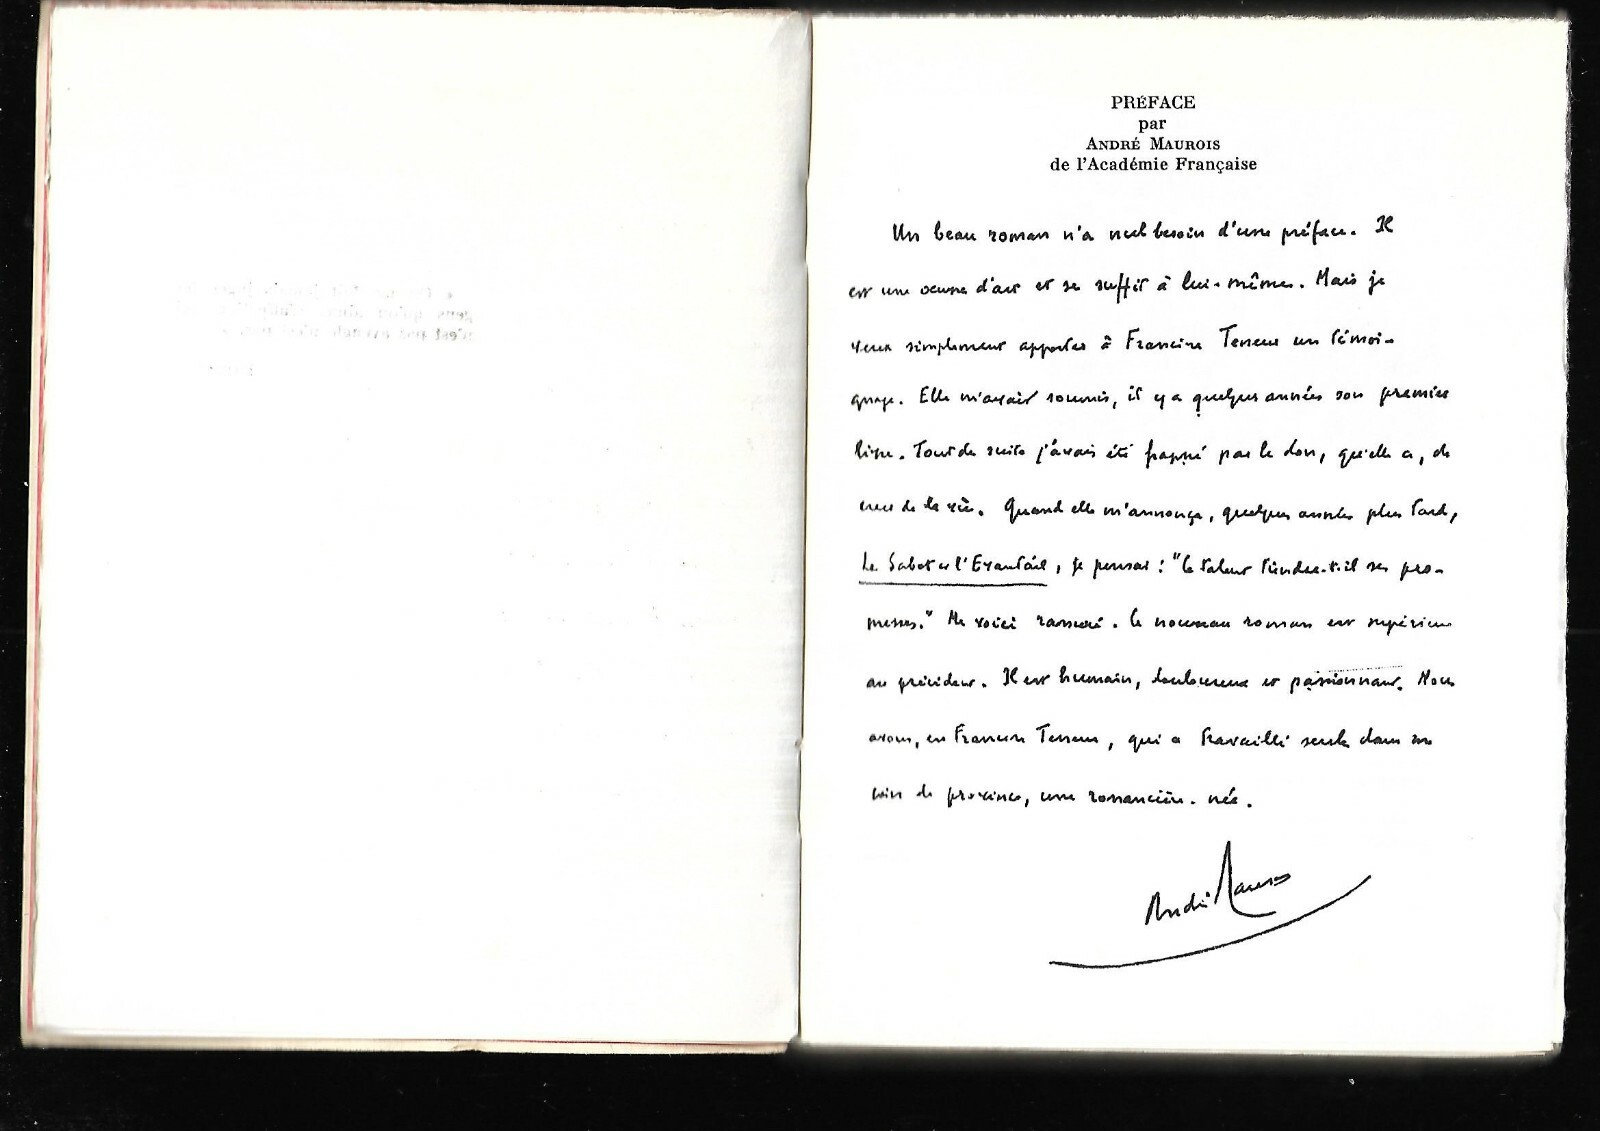 PRÉFACE
par
ANDRÉ MAUROIS
de l'Académie Française
Un beau roman n'a nul besoin d'une préface. Il
est une oeuvre d'art et se suffit à lui-même. Mais je
veux simplement apporter à Francine Terseur un témoi-
gnage. Elle m'avait soumis, il y a quelques années son premier
livre. Tout de suite j'avais été frappé par le don, qu'elle a, de
créer de la vie. Quand elle m'annonça, quelques années plus tard,
Le Sabot et l'Eventail, je pensai : "Le talent tiendra-t-il ses pro-
messes." Me voici rassuré. Le nouveau roman est supérieur
au précédent. Il est humain, douloureux et passionnant. Nous
avons, en Francine, qui a travaillé seule dans un
coin de province, une romancière-née.
André Maurois